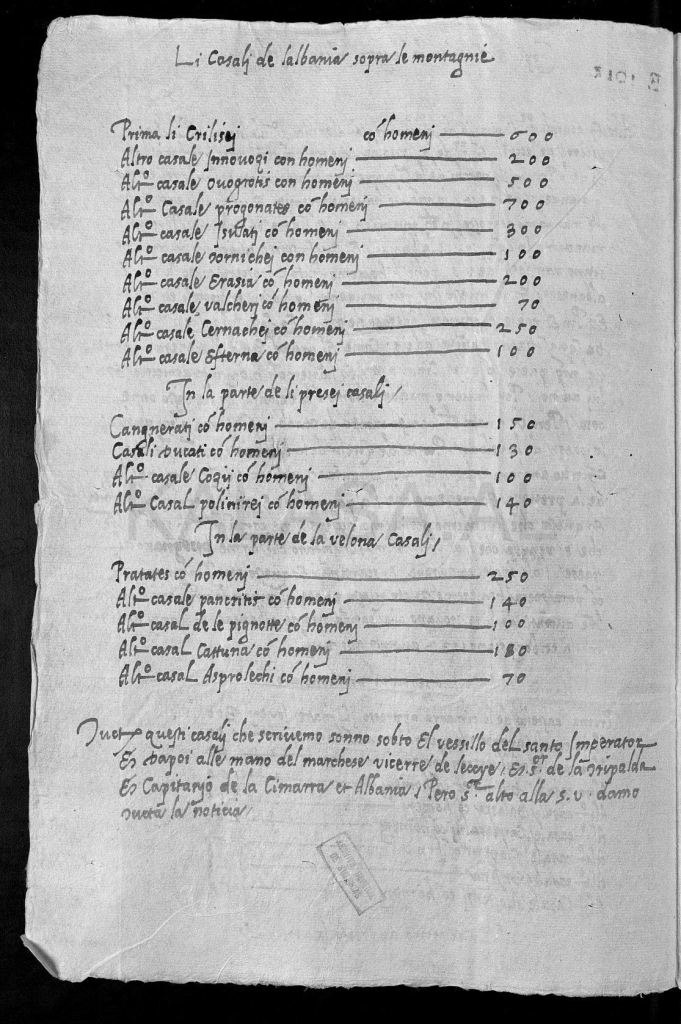 Li Casalj de lalbania sopra le montagnie
E. 1017
Prima li Crilisej có homenj 600
Altro casale Innouoqi con homenj 200
Altº casale ouogrotis con homenj 500
Altº Casale progonates có homenj 700
Altº casale Isuatj có homenj 300
Altº casale zornichej con homenj 100
Altº casale Erasia có homenj 200
Altº casale valcherj có homenj 70
Altº casale Cernachej có homenj 250
Altº casale Efterna có homenj 100
In la parte de li presej casalj,
Cangneratj có homenj 150
Casali ducati có homenj 130
Altº casale Coqij có homenj 100
Altº Casal polinirej có homenj 140
In la parte de la velona Casalj,
Pratates có homenj 250
Altº casale pancritis có homenj 140
Altº casal de le pignotte có homenj 100
Altº casal Castuna có homenj 180
Altº casal Asprolechi có homenj 70
questi casalj che scrivemo sonno sobto El vessillo del santo Imperator
Et dapoi alle mano del marchese vicerre de leceye, Et sr de la tripalda
Et Capitanjo de la Cimarra et Albania, Pero sre alto alla s.v. damo
tucta la noticia,